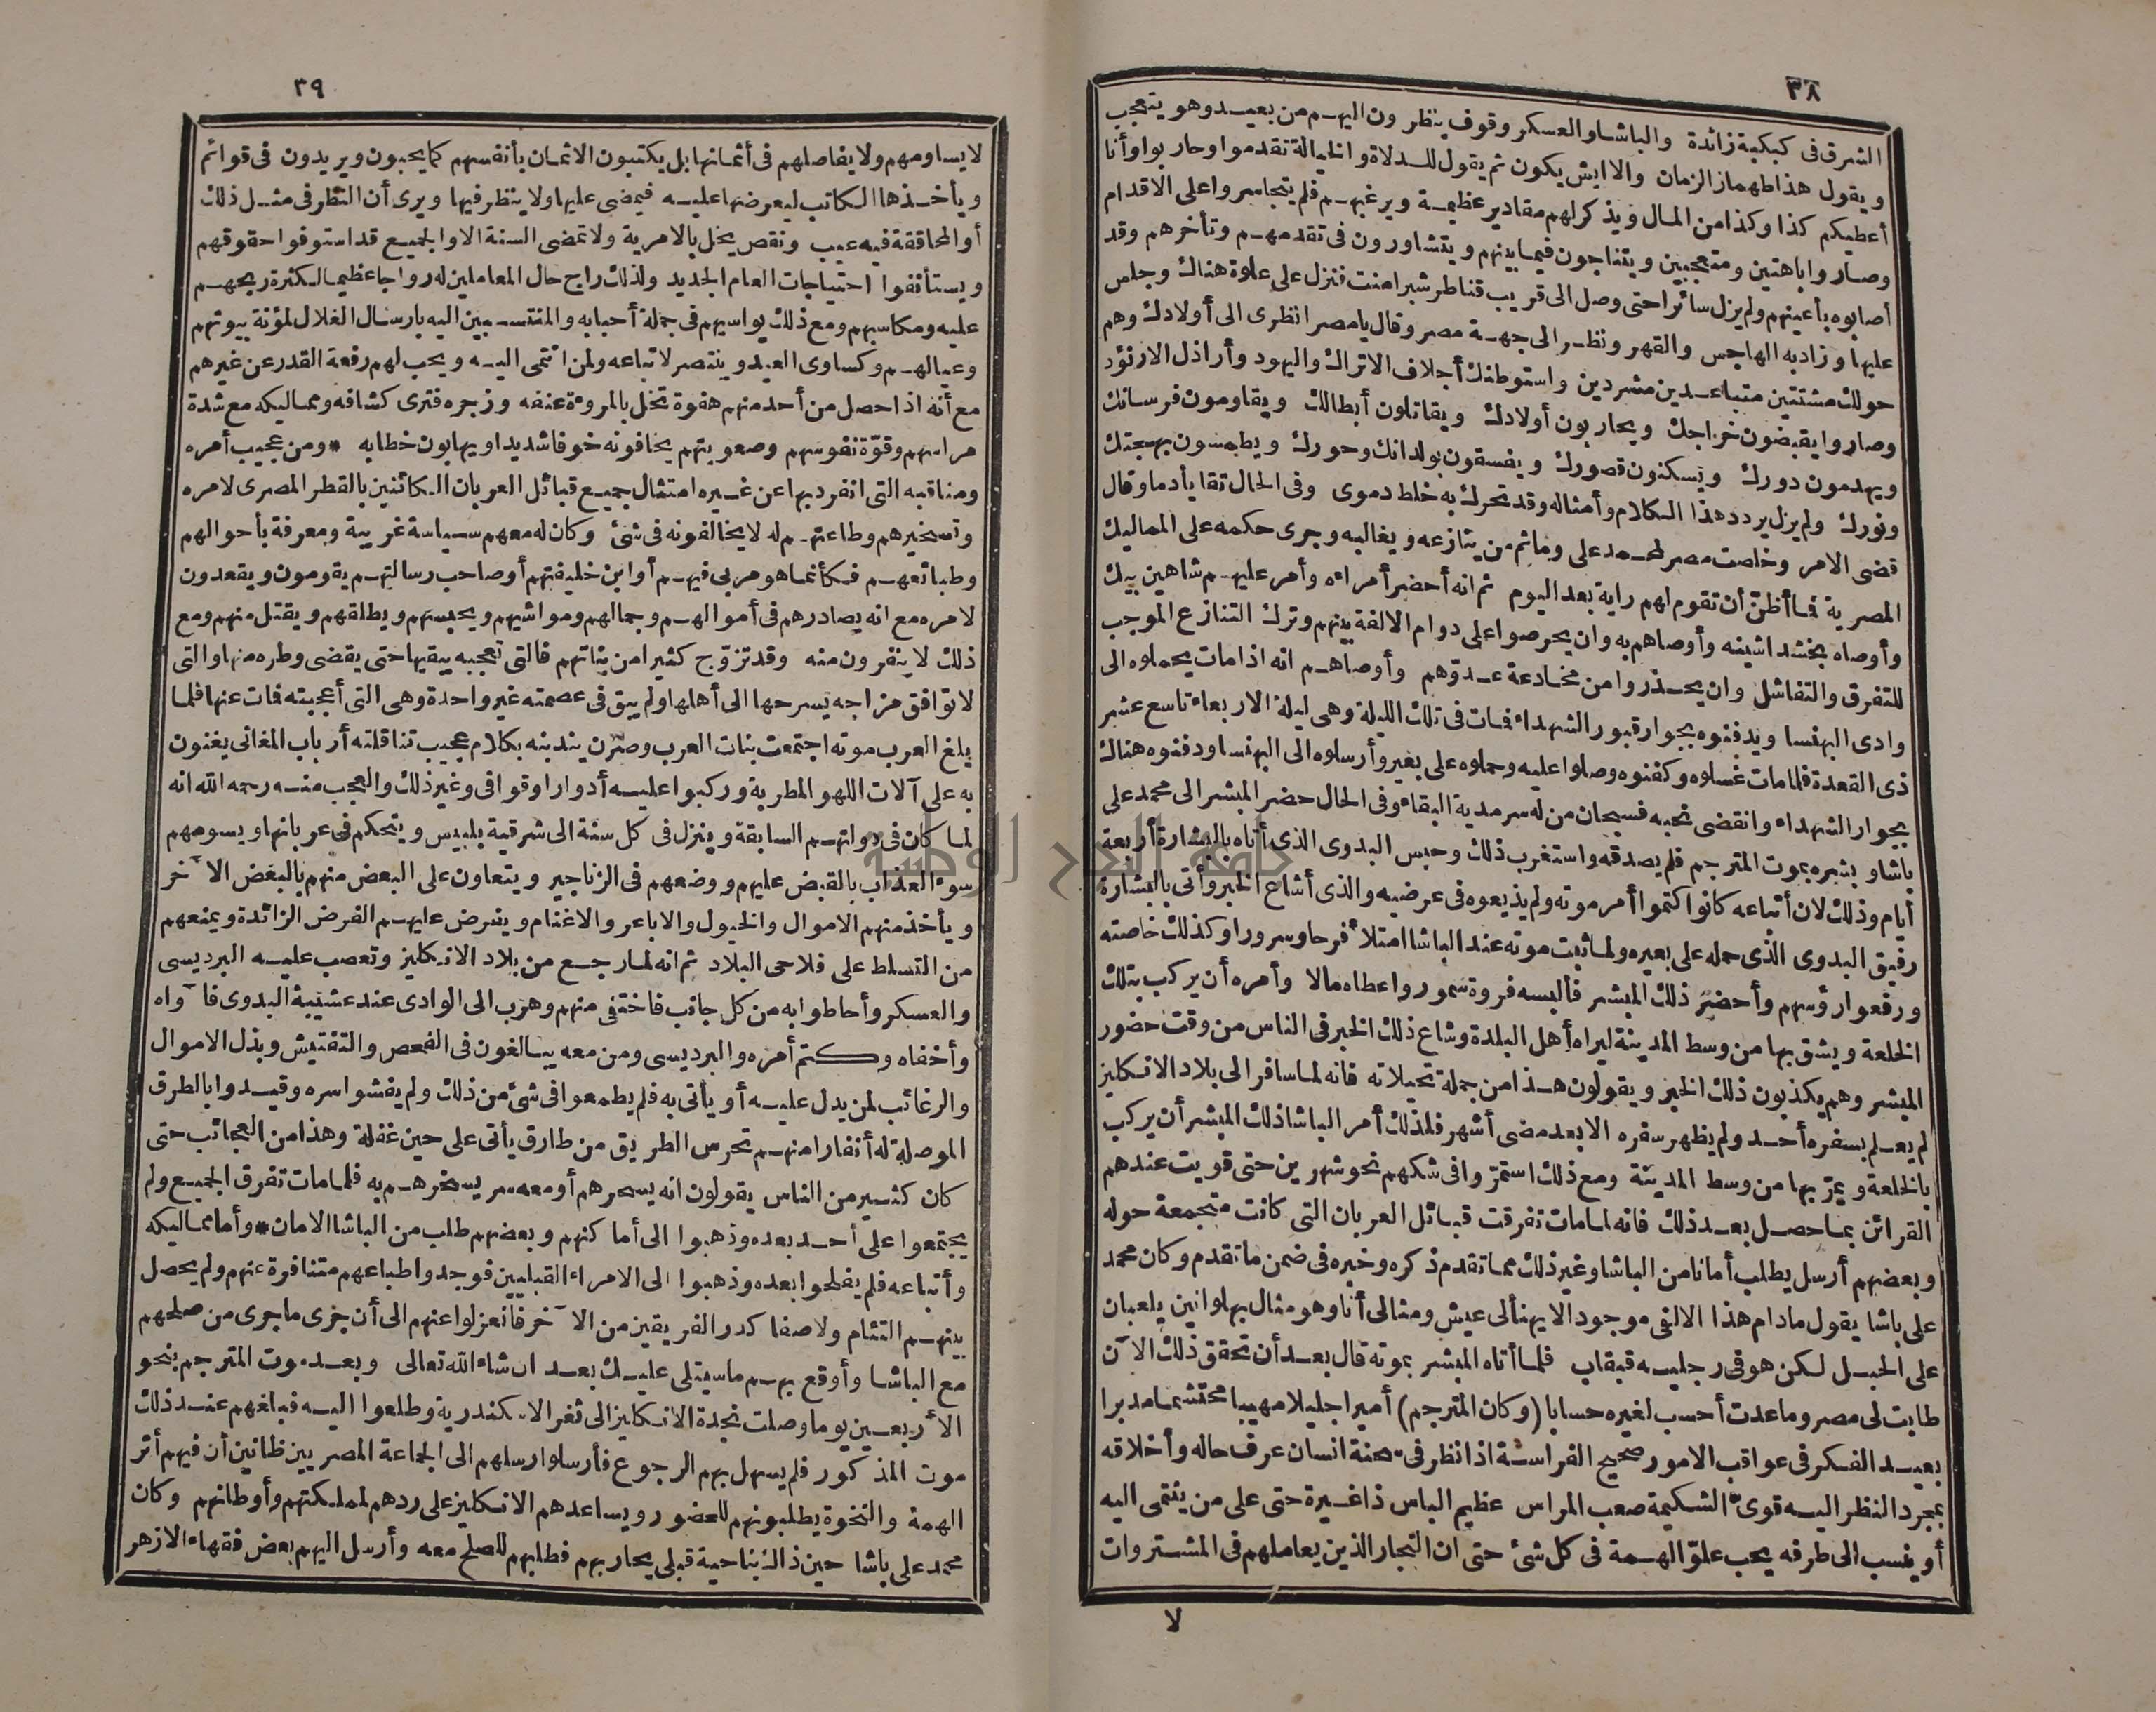 ٣٨
الشرق في كبكبة زائدة والباشا والعسكر وقوف ينظرون اليهم من بعيد وهو يتعجب
ويقول هذا طهماز الزمان والا ايش يكون ثم يقول للدلاة والخيالة تقدموا وحاربوا وأنا
أعطيكم كذا وكذا من المال ويذكر لهم مقادير عظيمة ويرغبهم فلم يتجاسروا على الاقدام
وصاروا باهتين ومتعجبين ويتناجون فيما بينهم ويتشاورون في تقدمهم وتأخرهم وقد
أصابوه بأعينهم ولم يزل سائرا حتى وصل الى قريب قناطر شبرامنت فنزل على علوة هناك وجلس
عليها وزاد به الهاجس والقهر ونظر الى جهة مصر وقال يا مصر انظرى الى أولادك وهم
حولك مشتتين متباعدين مشردين واستوطنك أجلاف الاتراك واليهود وأراذل الارنؤد
وصاروا يقبضون خراجك ويحاربون أولادك ويقاتلون أبطالك ويقاومون فرسانك
ويهدمون دورك ويسكنون قصورك ويفسقون بولدانك وحورك ويطمسون بهجتك
ونورك ولم يزل يردد هذا الكلام وأمثاله وقد تحرك به خلط دموى وفى الحال تقايأ دما وقال
قضى الامر وخلصت مصر لمحمد على وما ثم من ينازعه ويغالبه وجرى حكمه على المماليك
المصرية فما أظن أن تقوم لهم راية بعد اليوم ثم انه أحضر أمراءه وأمر عليهم شاهين بيك
وأوصاه بخشداشينه وأوصاهم به وان يحرصوا على دوام الالفة بينهم وترك التنازع الموجب
للتفرق والتفاشل وان يحذروا من مخادعة عدوّهم وأوصاهم انه اذا مات يحملوه الى
وادى البهنسا ويدفنوه بجوار قبور الشهداء فمات في تلك الليلة وهى ليلة الاربعاء تاسع عشر
ذى القعدة فلما مات غسلوه وكفنوه وصلوا عليه وحملوه على بعير وأرسلوه الى البهنسا ودفنوه هناك
بجوار الشهداء وانقضى نحبه فسبحان من له سرمدية البقاء وفى الحال حضر المبشر الى محمد على
باشا وبشره بموت المترجم فلم يصدقه واستغرب ذلك وحبس البدوى الذى أتاه بالبشارة أربعة
أيام وذلك لان أتباعه كانوا كتموا أمر موته ولم يذيعوه في عرضيه والذى أشاع الخبر وأتى بالبشارة
رفيق البدوى الذى حمله على بعيره ولما ثبت موته عند الباشا امتلأ فرحا وسرورا وكذلك خاصته
ورفعوا رؤسهم وأحضر ذلك المبشر فألبسه فروة سمور وأعطاه مالا وأمره أن يركب بتلك
الخلعة ويشق بها من وسط المدينة ليراه أهل البلدة وشاع ذلك الخبر فى الناس من وقت حضور
المبشر وهم يكذبون ذلك الخبر ويقولون هذا من جملة تحيلاته فانه لما سافر الى بلاد الانكليز
لم يعلم بسفره أحد ولم يظهر سفره الا بعد مضى أشهر فلذلك أمر الباشا ذلك المبشر أن يركب
بالخلعة ويمرّ بها من وسط المدينة ومع ذلك استمرّوا فى شكهم نحو شهرين حتى قويت عندهم
القرائن بما حصل بعد ذلك فانه لما مات تفرقت قبائل العربان التى كانت متجمعة حوله
وبعضهم أرسل يطلب أمانا من الباشا وغير ذلك مما تقدم ذكره وخبره فى ضمن ما تقدم وكان محمد
على باشا يقول مادام هذا الالفى موجود الا يهنألى عيش ومثالى أنا وهو مثال بهلوانين يلعبان
على الحبل لكن هو فى رجليه قبقاب فلما أتاه المبشر بموته قال بعد أن تحقق ذلك الآن
طابت لى مصر وما عدت أحسب لغيره حسابا (وكان المترجم) أميرا جليلا مهيبا محتشما مدبرا
بعيد الفكر فى عواقب الامور صحيح الفراسة اذا نظر فى سحنة انسان عرف حاله وأخلاقه
بمجرد النظر اليه قوىّ الشكيمة صعب المراس عظيم الباس ذا غيرة حتى على من ينتمى اليه
أو ينسب الى طرفه يحب علوّ الهمة فى كل شئ حتى ان التجار الذين يعاملهم فى المشتروات
لا
٣٩
لا يساومهم ولا يفاصلهم فى أثمانها بل يكتبون الاثمان بأنفسهم كما يحبون ويريدون فى قوائم
ويأخذها الكاتب ليعرضها عليه فيمضى عليها ولا ينظر فيها ويرى أن النظر فى مثل ذلك
أو المحاققة فيه عيب ونقص يخل بالامرية ولا تمضى السنة الا والجميع قد استوفوا حقوقهم
ويستأنفوا احتياجات العام الجديد ولذلك راج حال المعاملين له رواجا عظيما لكثرة ربحهم
عليه ومكاسبهم ومع ذلك يواسيهم فى جملة أحبابه والمنتسبين اليه بارسال الغلال لمؤنة بيوتهم
وعيالهم وكساوى العيد وينتصر لاتباعه ولمن انتمى اليه ويحب لهم رفعة القدر عن غيرهم
مع أنه اذا حصل من أحد منهم هفوة تخل بالمروءة عنفه وزجره فترى كشافه ومماليكه مع شدة
مراسهم وقوّة نفوسهم وصعوبتهم يخافونه خوفا شديدا ويهابون خطابه * ومن عجيب أمره
ومناقبه التى انفرد بها عن غيره امتثال جميع قبائل العربان الكائنين بالقطر المصرى لامره
وتسخيرهم وطاعتهم له لا يخالفونه فى شئ وكان له معهم سياسة غريبة ومعرفة بأحوالهم
وطبائعهم فكأنما هو مربى فيهم أو ابن خليفتهم أو صاحب رسالتهم يقومون ويقعدون
لامره مع انه يصادرهم فى أموالهم وجمالهم ومواشيهم ويحبسهم ويطلقهم ويقتل منهم ومع
ذلك لا ينفرون منه وقد تزوّج كثيرا من بناتهم فالتى تعجبه يبقيها حتى يقضى وطره منها والتى
لا توافق مزاجه يسرحها الى أهلها ولم يبق فى عصمته غير واحدة وهى التى أعجبته فمات عنها فلما
بلغ العرب موته اجتمعت بنات العرب وصرن يندبنه بكلام عجيب تناقلته أرباب المغانى يغنون
به على آلات اللهو المطربة وركبوا عليه أدوارا وقوافى وغير ذلك والعجب منه رحمه الله انه
لما كان فى دولتهم السابقة وينزل فى كل سنة الى شرقية بلبيس ويتحكم فى عربانها ويسومهم
سوء العذاب بالقبض عليهم ووضعهم فى الزناجير ويتعاون على البعض منهم بالبعض الآخر
ويأخذ منهم الاموال والخيول والاباعر والاغنام ويفرض عليهم الفرض الزائدة ويمنعهم
من التسلط على فلاحى البلاد ثم انه لما رجع من بلاد الانكليز وتعصب عليه البرديسى
والعسكر وأحاطوا به من كل جانب فاختفى منهم وهرب الى الوادى عند عشيبة البدوى فآواه
وأخفاه وكتم أمره والبرديسى ومن معه يبالغون فى الفحص والتفتيش وبذل الاموال
والرغائب لمن يدل عليه أو يأتى به فلم يطمعوا فى شئ من ذلك ولم يفشوا سره وقيدوا بالطرق
الموصلة له أنفارا منهم تحرس الطريق من طارق يأتى على حين غفلة وهذا من العجائب حتى
كان كثير من الناس يقولون انه يسحرهم أو معه سر يسخرهم به فلما مات تفرق الجميع ولم
يجتمعوا على أحد بعده وذهبوا الى أماكنهم وبعضهم طلب من الباشا الامان * وأما مماليكه
وأتباعه فلم يفلحوا بعده وذهبوا الى الامراء القبليين فوجدوا طباعهم متنافرة عنهم ولم يحصل
بينهم التئام ولا صفا كدر الفريقين من الآخر فانعزلوا عنهم الى أن جرى ما جرى من صلحهم
مع الباشا وأوقع بهم ما سيتلى عليك بعد ان شاء الله تعالى وبعد موت المترجم بنحو
الأربعين يوما وصلت نجدة الانكليز الى ثغر الاسكندرية وطلعوا اليه فبلغهم عند ذلك
موت المذكور فلم يسهل بهم الرجوع فأرسلوا رسلهم الى الجماعة المصريين ظانين أن فيهم أثر
الهمة والنخوة يطلبونهم للحضور ويساعدهم الانكليز على ردهم لمملكتهم وأوطانهم وكان
محمد على باشا حين ذاك بناحية قبلى يحاربهم فطلبهم للصلح معه وأرسل اليهم بعض فقهاء الازهر